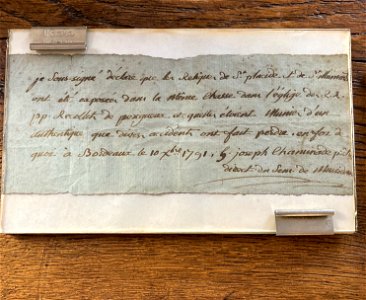 je soussigné déclare que les Reliques de St placide St de St
ont été exposées dans la même Chasse dans l'église des RR
pp. Recollets de perigueux et qu'elles étoient munies d'un
authentique que divers accidents ont fait perdre en foi de
quoi à Bordeaux le 10 xbre 1791. G. joseph Chaminade